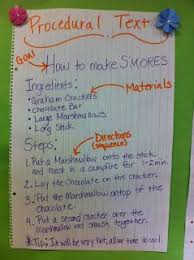 Procedural Text
Goal
How to make SMORES
Ingredients:
Materials
• Graham Crackers
• Chocolate Bar
• Large Marshmallows
• Long Stick
Directions
(sequence)
Steps:
1. Put a Marshmallow onto the stick
and roast in a campfire for 1-2min.
2. Lay the Chocolate on the cracker.
3. Put the Marshmallow on top of
the chocolate.
4. Put a second cracker over the
marshmallow and smush together.
*Tip: It will be very hot, allow time to cool.